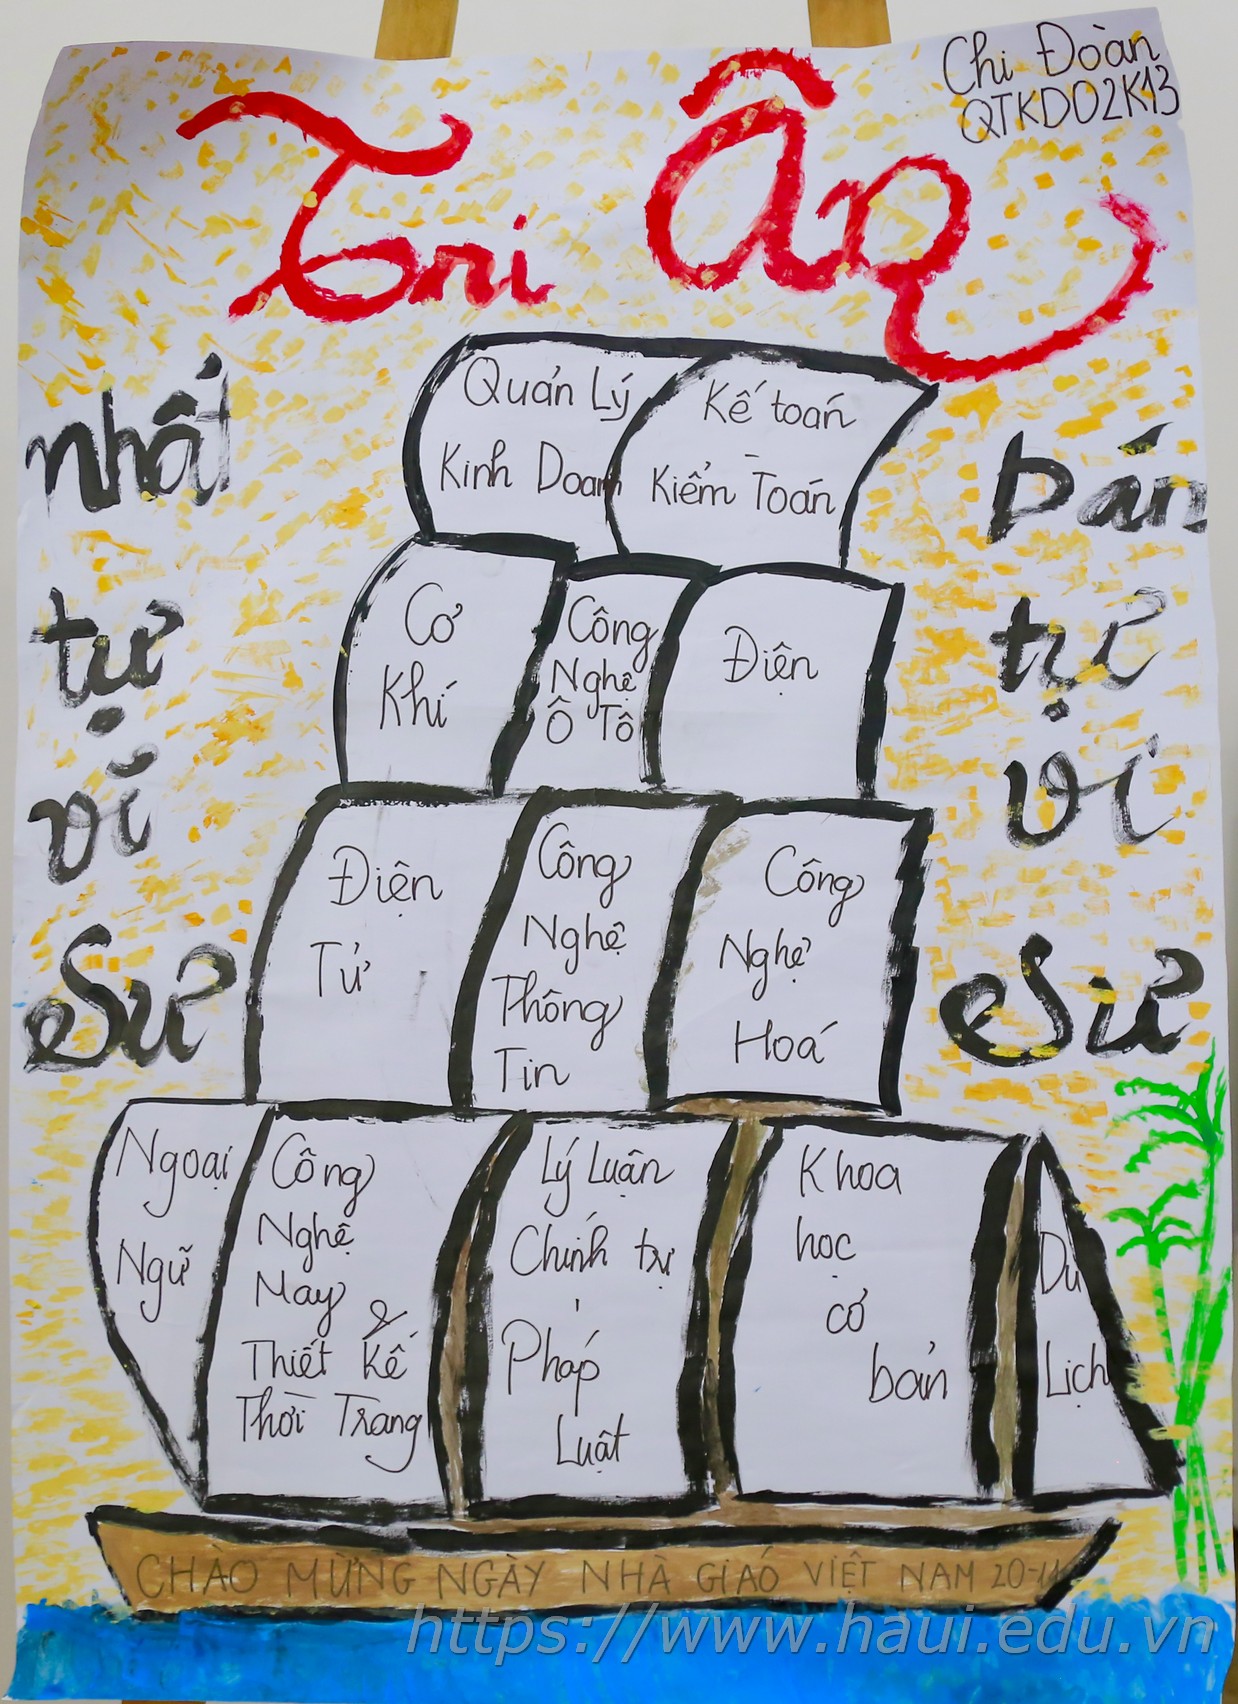 Chi Đoàn
QTKD02K13
Tri Ân
nhất
tự
vĩ
Sư
Bán
tự
vi
Sư
Quản Lý
Kinh Doanh
Kế toán
-
Kiểm Toán
Cơ
Khí
Công
Nghệ
Ô Tô
Điện
Điện
Tử
Công
Nghệ
Thông
Tin
Công
Nghệ
Hoá
Ngoại
Ngữ
Công
Nghệ
May &
Thiết Kế
Thời Trang
Lý Luận
Chính trị
-
Pháp
Luật
Khoa
học
cơ
bản
Du
Lịch
CHÀO MỪNG NGÀY NHÀ GIÁO VIỆT NAM 20-11
https://www.haui.edu.vn